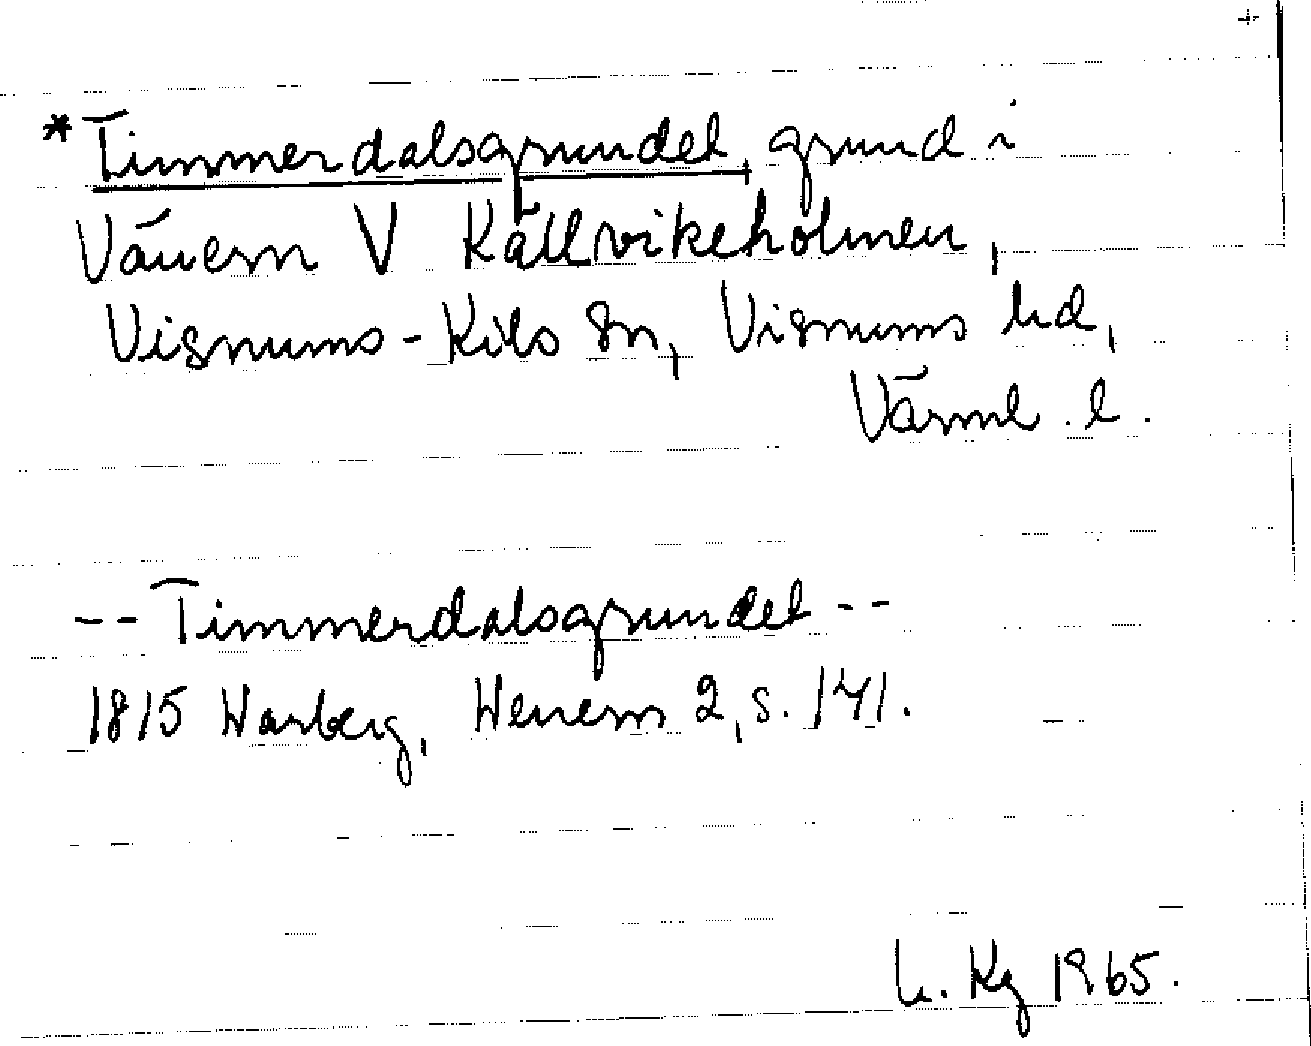 * Timmerdalsgrundet, grund i
Vänern V Källvikeholmen,
Visnums-Kils sn, Visnums hd,
Värml. l.
-- Timmerdalsgrundet --
1815 Warberg, Wenern 2, s. 141.
L. Kg 1965.